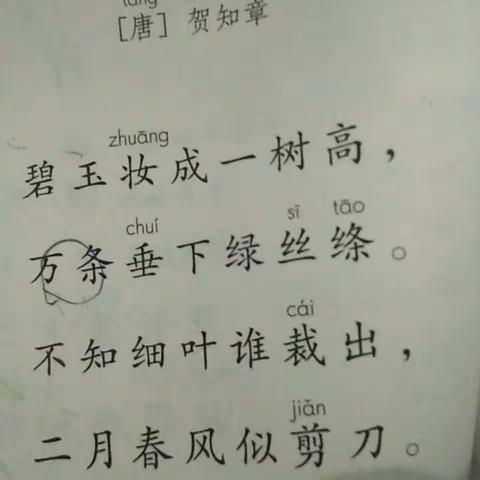 táng
[唐] 贺知章
zhuāng
碧玉妆成一树高，
chuí sī tāo
万条垂下绿丝绦。
cái
不知细叶谁裁出，
jiǎn
二月春风似剪刀。